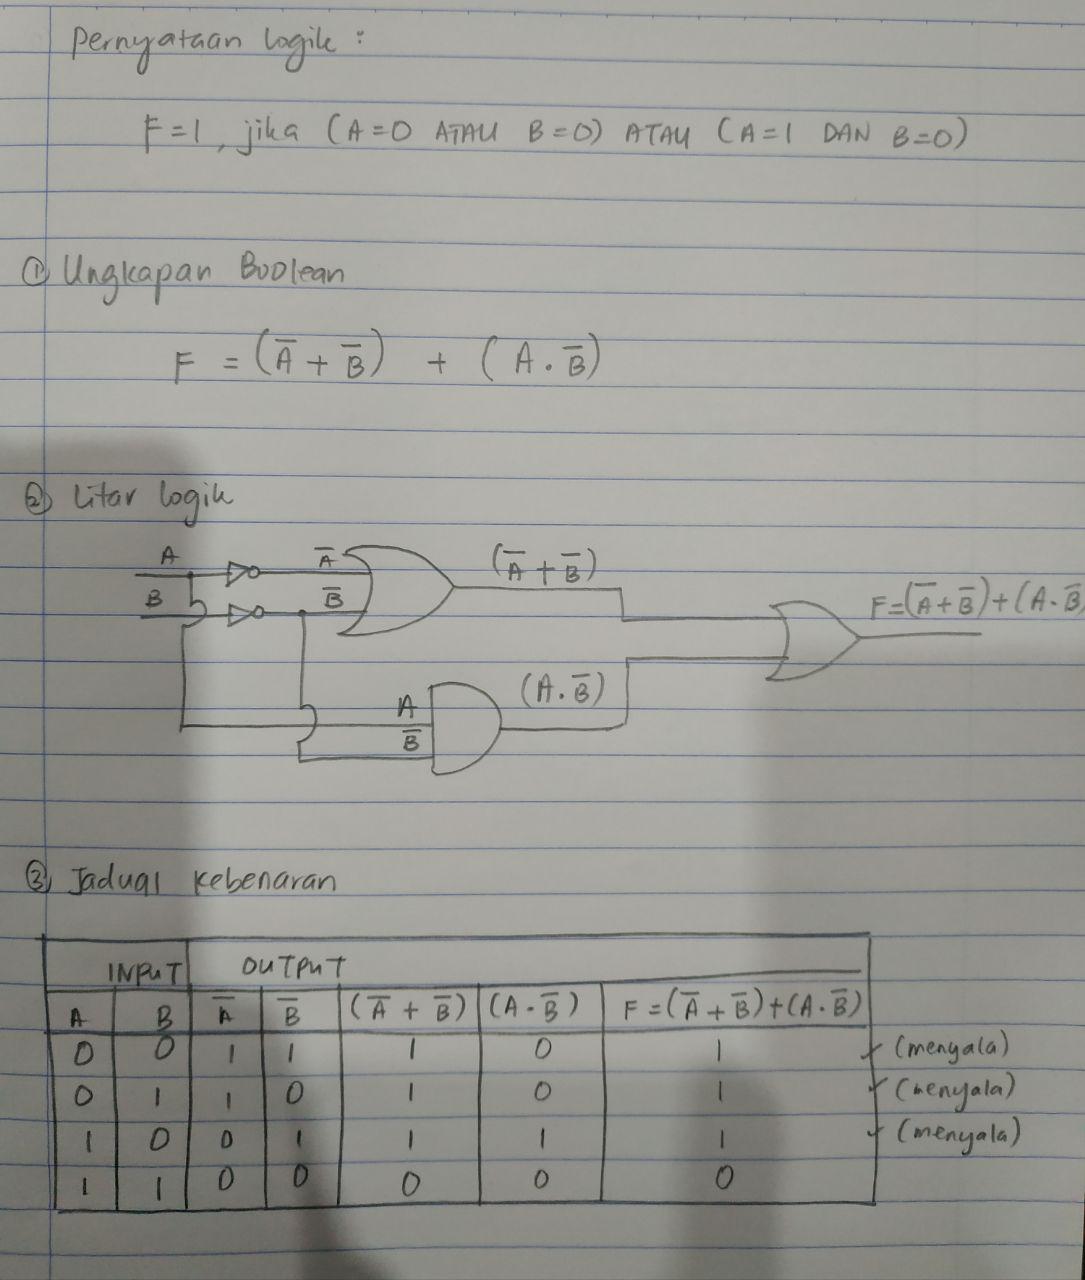 Pernyataan logik :
F = 1 , jika (A = 0 ATAU B = 0) ATAU (A = 1 DAN B = 0)
① Ungkapan Boolean
F = (A̅ + B̅) + (A . B̅)
② Litar logik
A A̅ (A̅ + B̅)
B B̅ F = (A̅ + B̅) + (A . B̅)
A (A . B̅)
B̅
③ Jadual kebenaran
INPUT OUTPUT
A B A̅ B̅ (A̅ + B̅) (A . B̅) F = (A̅ + B̅) + (A . B̅)
0 0 1 1 1 0 1 (menyala)
0 1 1 0 1 0 1 (menyala)
1 0 0 1 1 1 1 (menyala)
1 1 0 0 0 0 0